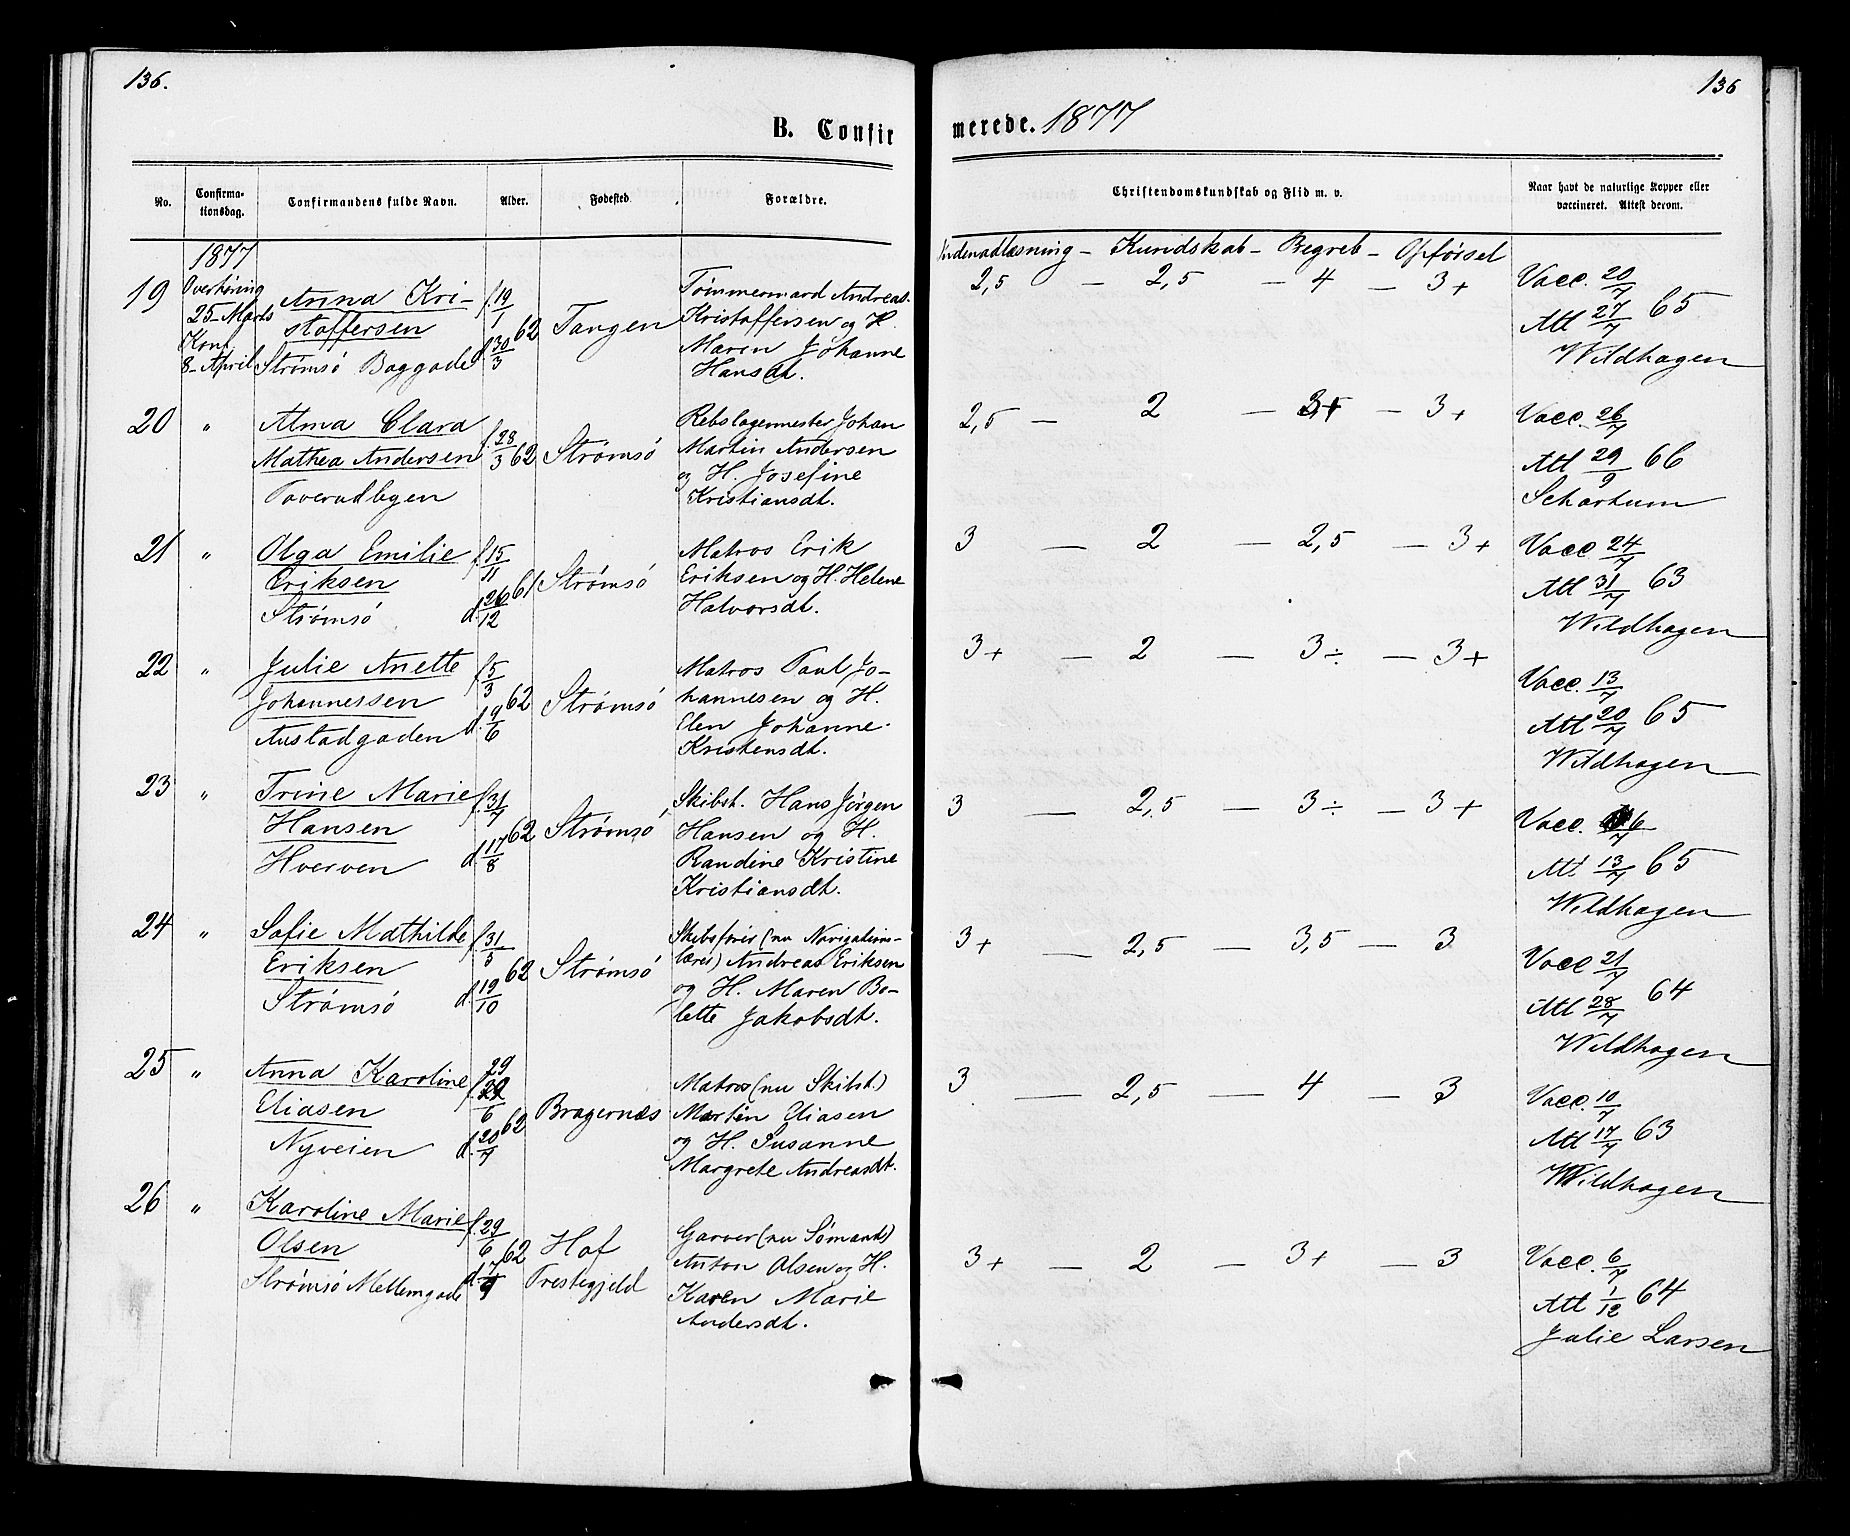 136.
136
B. Confirmerede. 1877
No.
Confirmationsdag.
Confirmandens fulde Navn.
Alder.
Fødested.
Forældre.
Christendomskundskab og Flid m. v.
Naar havt de naturlige Kopper eller
vaccineret. Attest derom.
1877
Indenadlæsning – Kundskab – Begreb – Opførsel
19
Overhøring
25– Marts
Konf.
8– April
Anna Kri-
stoffersen
Strømsö Baggade
f. 19/1
62
d. 30/3
Tangen
Tømmermand Andreas
Kristoffersen og H.
Maren Johanne
Hansdt.
2,5 – 2,5 – 4 – 3+
Vacc. 20/7
Att 27/7 65
Wildhagen
20
"
Alma Clara
Mathea Andersen
Toverudbgen
f. 28/3 62
Strømsö
Rebslagermester Johan
Martin Andersen
og H. Josefine
Kristiansdt.
2,5 – 2 – 3+ – 3+
Vacc. 26/7
Att 29/9 66
Schartum
21
"
Olga Emilie
Eriksen
Strømsö
f. 15/11
61
d. 26/12
Strømsö
Matros Erik
Eriksen og H. Helene
Halvorsdt.
3 – 2 – 2,5 – 3+
Vacc 24/7
Att 31/7 63
Wildhagen
22
"
Julie Anette
Johannessen
Austadgaden
f. 5/3
62
d. 9/6
Strømsö
Matros Paul Jo-
hannesen og H.
Elen Johanne
Kristensdt.
3+ – 2 – 3÷ – 3+
Vacc. 13/7
Att 20/7 65
Wildhagen
23
"
Trine Marie
Hansen
Hverven
f. 31/7
62
d. 17/8
Strømsö
Skibst. Hans Jörgen
Hansen og H.
Randine Kristine
Kristiansdt.
3 – 2,5 – 3÷ – 3+
Vacc. 6/7
Att 13/7 65
Wildhagen
24
"
Sofie Mathilde
Eriksen
Strømsö
f. 31/5
62
d. 19/10
Strømsö
Skibsfører (nu Navigations-
lærer) Andreas Eriksen
og H. Maren Bo-
lette Jakobsdt.
3+ – 2,5 – 3,5 – 3
Vacc 21/7
Att 28/7 64
Wildhagen
25
"
Anna Karoline
Eliasen
Nyveien
f. 29/6
62
d. 20/7
Bragernæs
Matros (nu Skibst.)
Martin Eliasen
og H. Susanne
Margrete Andreasdt.
3 – 2,5 – 4 – 3
Vacc. 10/7
Att 17/7 63
Wildhagen
26
"
Karoline Marie
Olsen
Strømsö Mellemgade
f. 29/6
62
d. 17/9
Hof
Prestegjeld
Garver (nu Sömand)
Anton Olsen og H.
Karen Marie
Andersdt.
3+ – 2 – 3+ – 3
Vacc. 6/7
Att 1/12 64
Julie Larsen